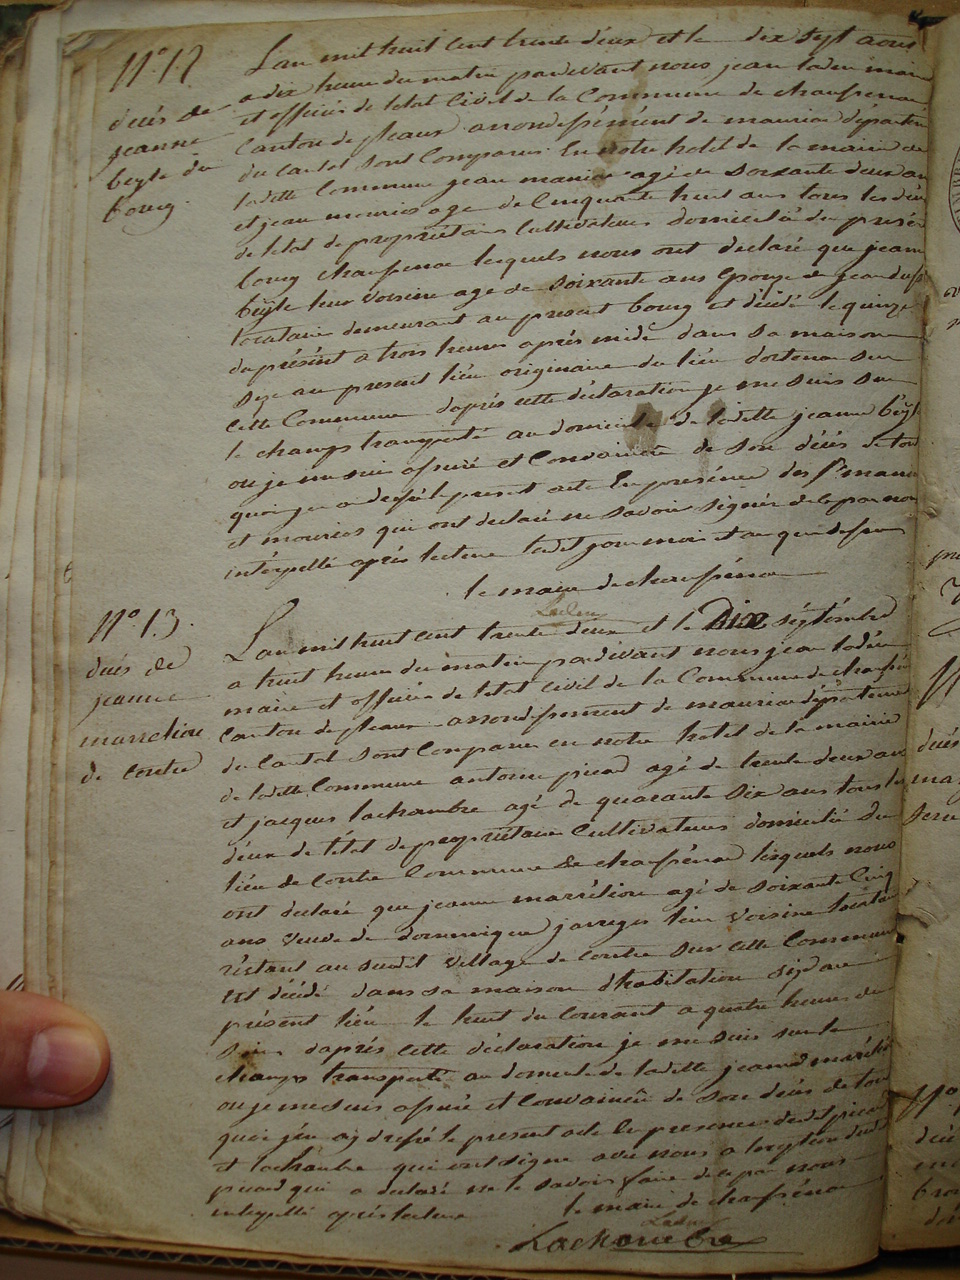 N° 12
décés de
jeanne
beyle du
bourg
Lan mil huit cent trente deux et le dix sept aout
a dix heure du matin pardevant nous jean maire
et officier de letat Civil de la Commune de chaussenac
Canton de pleaux arrondissement de mauriac départem
du cantal sont Comparus En notre hotel de la mairie de
ladite Commune jean agé de soixante deux an
et jean mouries age de Cinquante huit ans tous les deux
de letat de propriétaire Cultivateurs domiciliés du présen
bourg chaussenac lesquels nous ont declaré que jeanne
beÿle leur voisine age de soixante ans Epouse de jean
locataire demeurant au present bourg est décédé le quinze
du présent a trois heures aprés midi dans sa maison
size au present lieu originaire du lieu sur
cette Commune daprés cette déclaration je me suis sur
le champs transporté au domicile de ladite jeanne bëyle
ou je me suis assuré et Convaincu de son décés de tout
quoi jen ai dressé le present acte En présence des
et mouries qui ont declaré ne savoir signer de ce par nous
intérpellé aprés lecture ledit jour mois et an que dessus
le maire de chaussénac
N° 13
décés de
jeanne
marreliou
de contre
Lan mil huit cent trente deux et le Dix séptémbre
a huit heure du matin pardévant nous jean
maire et officier de letat civil de la Commune de chaussé
Canton de pleaux arrondissement de mauriac départemen
du Cantal sont Comparus en notre hotel de la mairie
de ladite Commune antoine picard agé de trente deux an
et jacques lachambre agé de quarante six ans tous les
déux de létat de propriétaire Cultivateurs domicilié du
lieu de Contre Commune de chaussénac lesquels nous
ont declaré que jeanne marréliou agé de soixante Cinq
ans veuve de dominique jarriges leur voisine locatair
réstant au susdit village de Contre sur cette Commune
est décédé dans sa maison dhabitation size au
présent lieu le huit du Courant a quatre heures du
soir daprés cette déclaration je me suis sur le
champs transporté au domicile de ladite jeanne maréliou
ou je me suis assuré et Convaincü de son décés de tout
quoi jén aÿ dressé le present acte En presence dudit picard
et lachambre qui ont signé avec nous a lexeption dudit
picard qui a declaré ne le savoir faire de ce par nous
intérpellé aprés lecture le maire de chaussénac
Lachambre